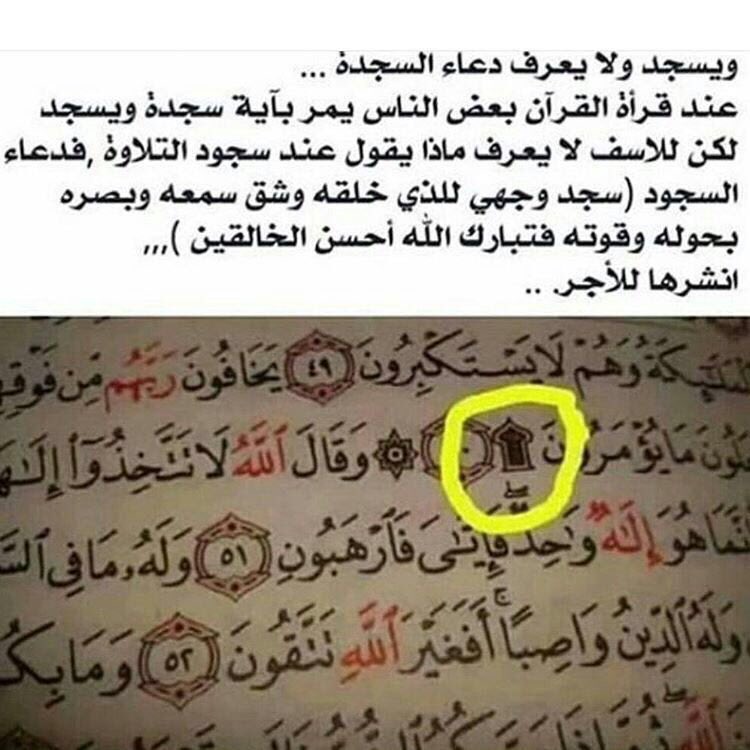 ويسجد ولا يعرف دعاء السجدة ...
عند قرأة القرآن بعض الناس يمر بآية سجدة ويسجد
لكن للاسف لا يعرف ماذا يقول عند سجود التلاوة ,فدعاء
السجود (سجد وجهي للذي خلقه وشق سمعه وبصره
بحوله وقوته فتبارك الله أحسن الخالقين ),,,
انشرها للأجر. ..
وَهُمْ لَا يَسْتَكْبِرُونَ ٤٩ يَخَافُونَ رَبَّهُم مِّن فَوْقِهِ
مَا يُؤْمَرُونَ ۩ ۞ وَقَالَ ٱللَّهُ لَا تَتَّخِذُوٓا۟ إِلَـٰهَ
نَّمَا هُوَ إِلَـٰهٌ وَٰحِدٌ فَإِيَّـٰىَ فَٱرْهَبُونِ ٥١ وَلَهُۥ مَا فِى ٱلسَّ
وَلَهُ ٱلدِّينُ وَاصِبًا ۚ أَفَغَيْرَ ٱللَّهِ تَتَّقُونَ ٥٢ وَمَا بِكُ